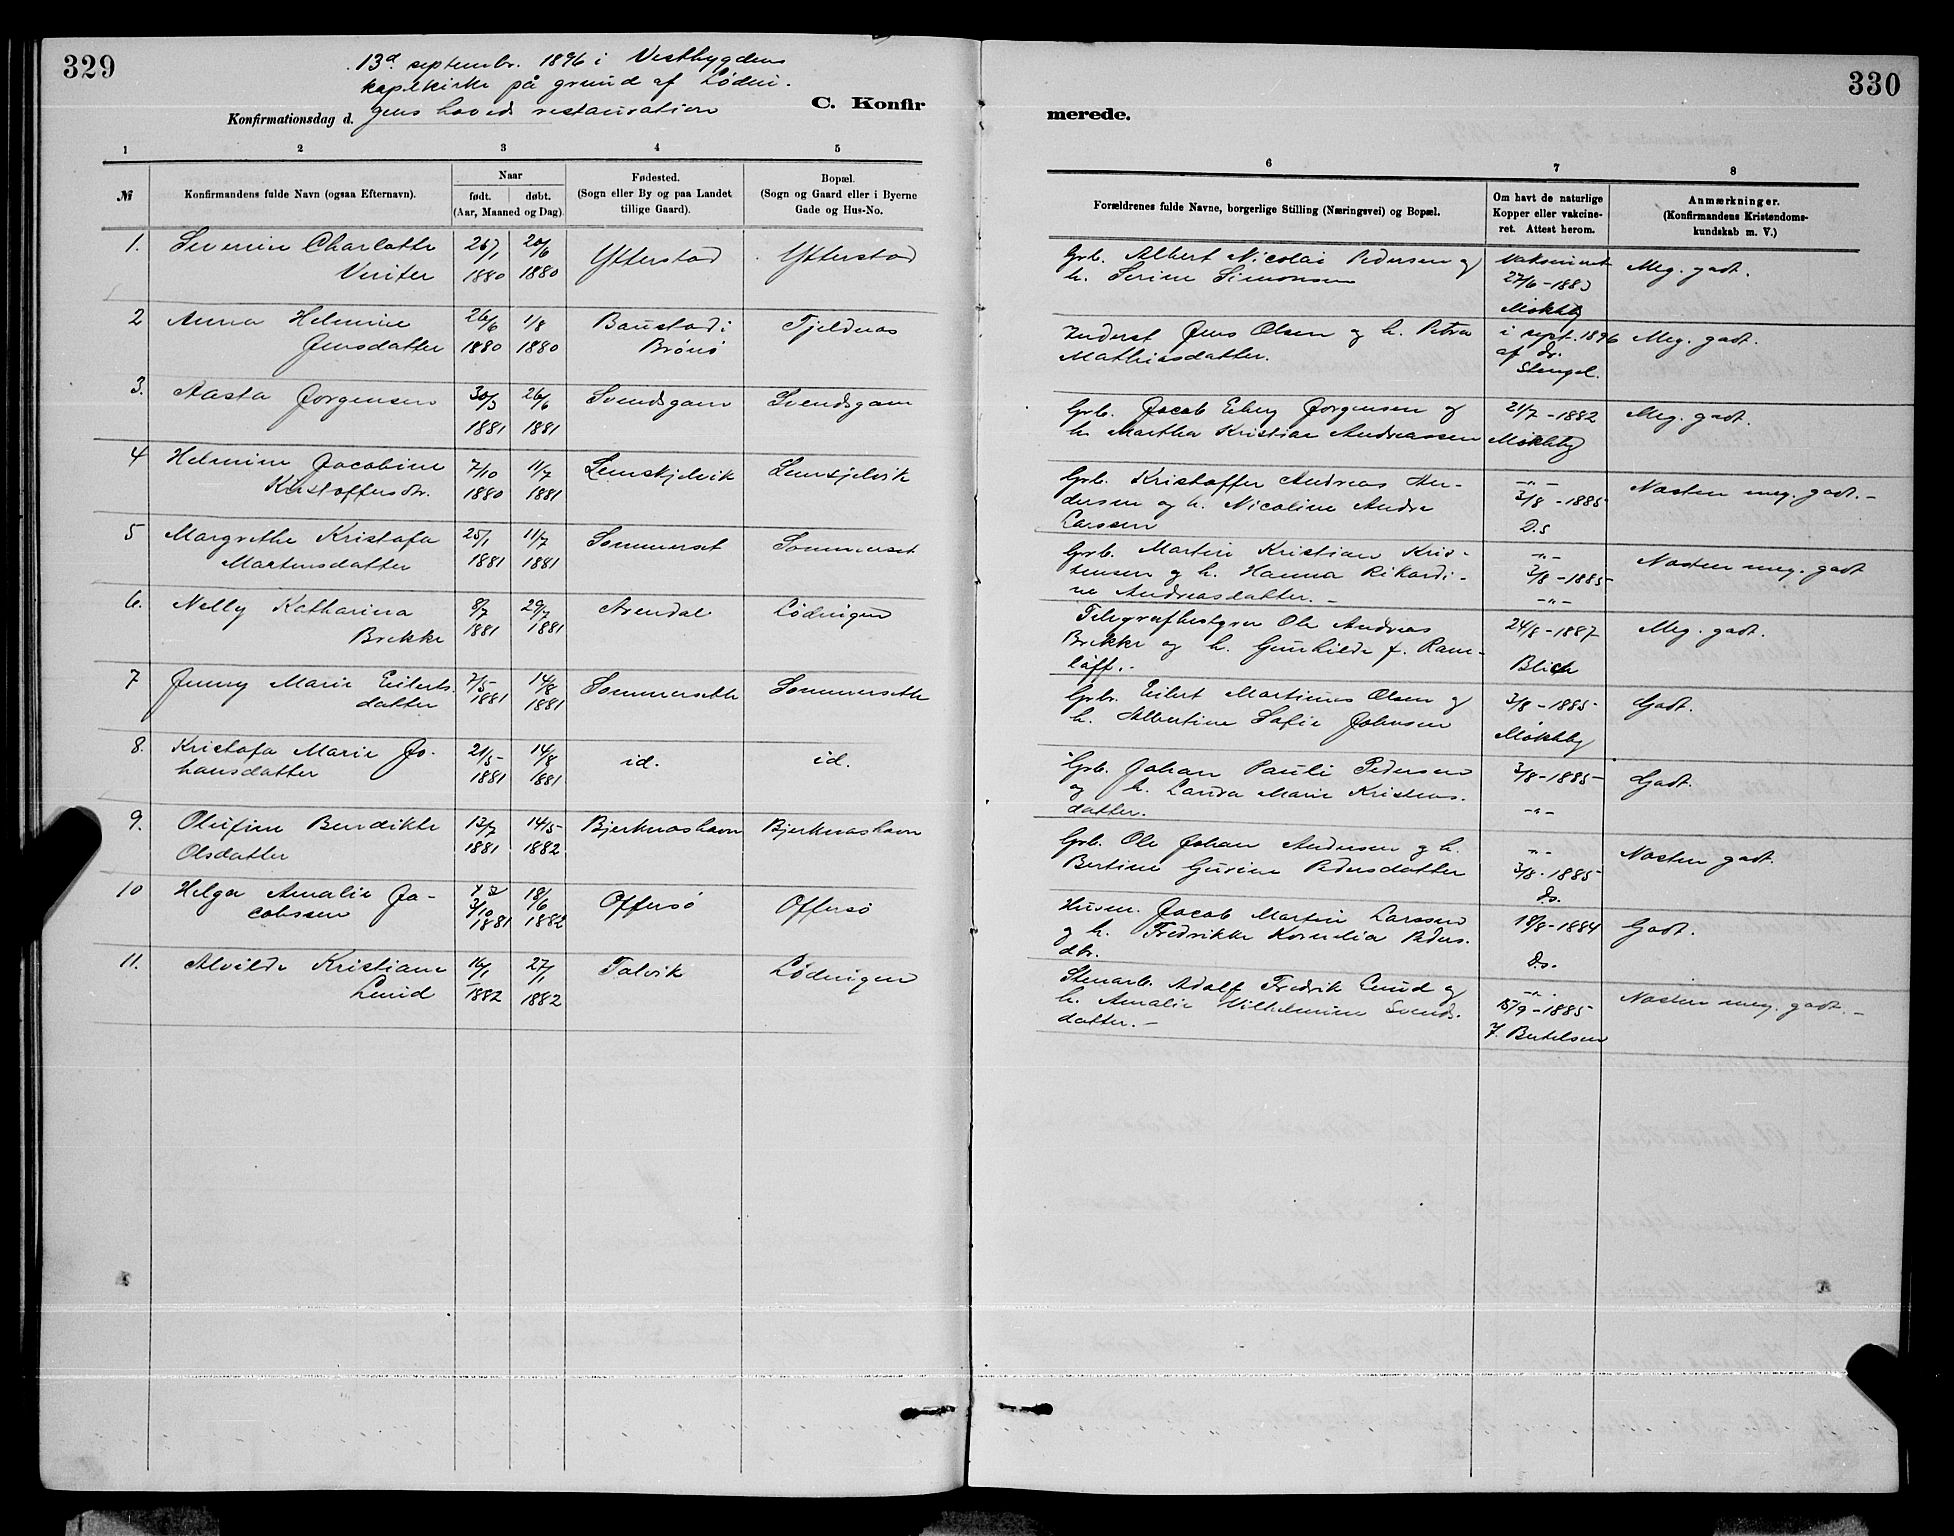 329
13d septembr. 1896 i Vestbygdens
kapelkirke på grund af Lødin-
Konfirmationsdag d. gens hoveds restauration
C. Konfir
1 2 3 4 5
№
Konfirmandens fulde Navn (ogsaa Efternavn).
Naar
født. døbt.
(Aar, Maaned og Dag)
Fødested.
(Sogn eller By og paa Landet
tillige Gaard).
Bopæl.
(Sogn og Gaard eller i Byerne
Gade og Hus-No.
1. Severine Charlotte 26/1 20/6 Ytterstad Ytterstad
1880 1880
2 Anna Helmine 26/6 1/8 Baustad i Tjeldnæs
Jensdatter 1880 1880 Brönö
3. Aasta Jørgensen 30/3 26/6 Svendsgam Svendsgam
1881 1881
4 Helmine Jacobine 7/10 11/7 Lenskjelvik Lenskjelvik
Kristoffersdtr. 1880 1881
5 Margrethe Kristofa 25/1 11/7 Sommerset Sommerset
Martensdatter 1881 1881
6. Nelly Katharina 8/7 29/7 Arendal Lødingen
Brekke 1881 1881
7 Jenny Marie Eilerts- 7/5 14/8 Sommerseth Sommerseth
datter 1881 1881
8. Kristofa Marie Jo- 21/5 14/8 id. id.
hansdatter 1881 1881
9. Olufine Bendikte 13/7 14/5 Bjerknæshavn Bjerknæshavn
Olsdatter 1881 1882
10 Helga Amalie Ja- 3/10 18/6 Offersö Offersö
cobssen 1881 1882
11. Alvilde Kristiane 16/1 27/1 Talvik Lødingen
Lund 1882 1882
330
merede.
6 7 8
Forældrenes fulde Navne, borgerlige Stilling (Næringsvei) og Bopæl.
Om havt de naturlige
Kopper eller vakcine-
ret. Attest herom.
Anmærkninger.
(Konfirmandens Kristendoms-
kundskab m. V.)
Grb. Albert Nicolai Pedersen og Vaksineret Meg. godt.
h. Serine Simonsen 27/6-1883
Møkhby
Jens Olsen og h. Petra i sept. 1896 Meg. godt.
Mathiasdatter. af dr.
Stengel.
Grb. Jacob Eberg Jørgensen og 21/7-1882 Meg. godt.
h. Martha Kristine Andreassen Møkhby
Grb. Kristoffer Andreas An- -"- Næsten meg. godt.-
dersen og h. Nicoline Andrea 3/8-1885
Larssen D.S
Grb. Martin Kristian Kris- -"- Næsten meg. godt
tensen og h. Hanna Rikardi- 3/8-1885
ne Andreasdatter.- -"-
Telegrafbestyrer Ole Andreas 24/8-1887 Meg. godt.
Brekke og h. Gunhilde f. Ram-
löff.. Blich
Grb. Eilert Martinus Olsen og 3/8-1885 Godt.
h. Albertine Sofie Johnsen Møkhby
Grb. Johan Pauli Pedersen 3/8-1885 Godt.
og h. Laura Marie Kristens-
datter. -"-
Grb. Ole Johan Andersen og h. -"- Næsten godt.
Bertine Gurine Pedersdatter 3/8-1885
Ds.
Husm. Jacob Martin Larssen 18/8-1884 Godt.
og h. Fredrikke Kornelia Peders-
dtr. Ds.
Stenarb. Adolf Fredrik Lund og -"- Næsten meg. godt.-
h. Amalie Vilhelmine Svends- 15/9-1885
datter.- J. Bertelsen